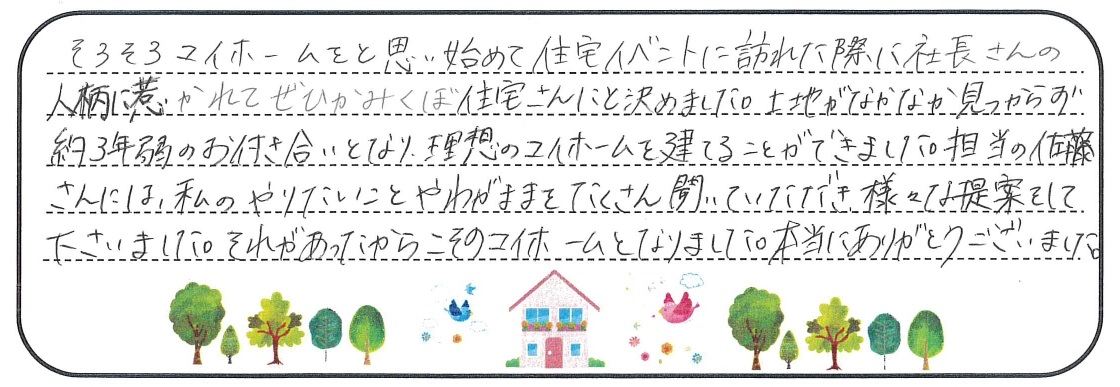 そろそろマイホームをと思い始めて住宅イベントに訪れた際に社長さんの
人柄に惹かれてぜひかみくぼ住宅さんにと決めました。土地がなかなか見つからず
約3年弱のお付き合いとなり、理想のマイホームを建てることができました。担当の佐藤
さんには、私のやりたいことやわがままをたくさん聞いていただき、様々な提案をして
下さいました。それがあったからこそのマイホームとなりました。本当にありがとうございました。